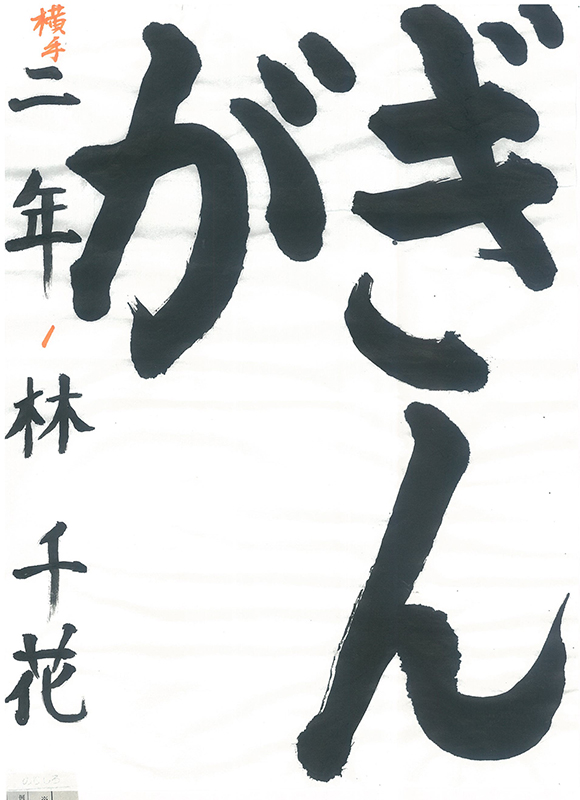 ぎん
が
横手
二年 林 千花